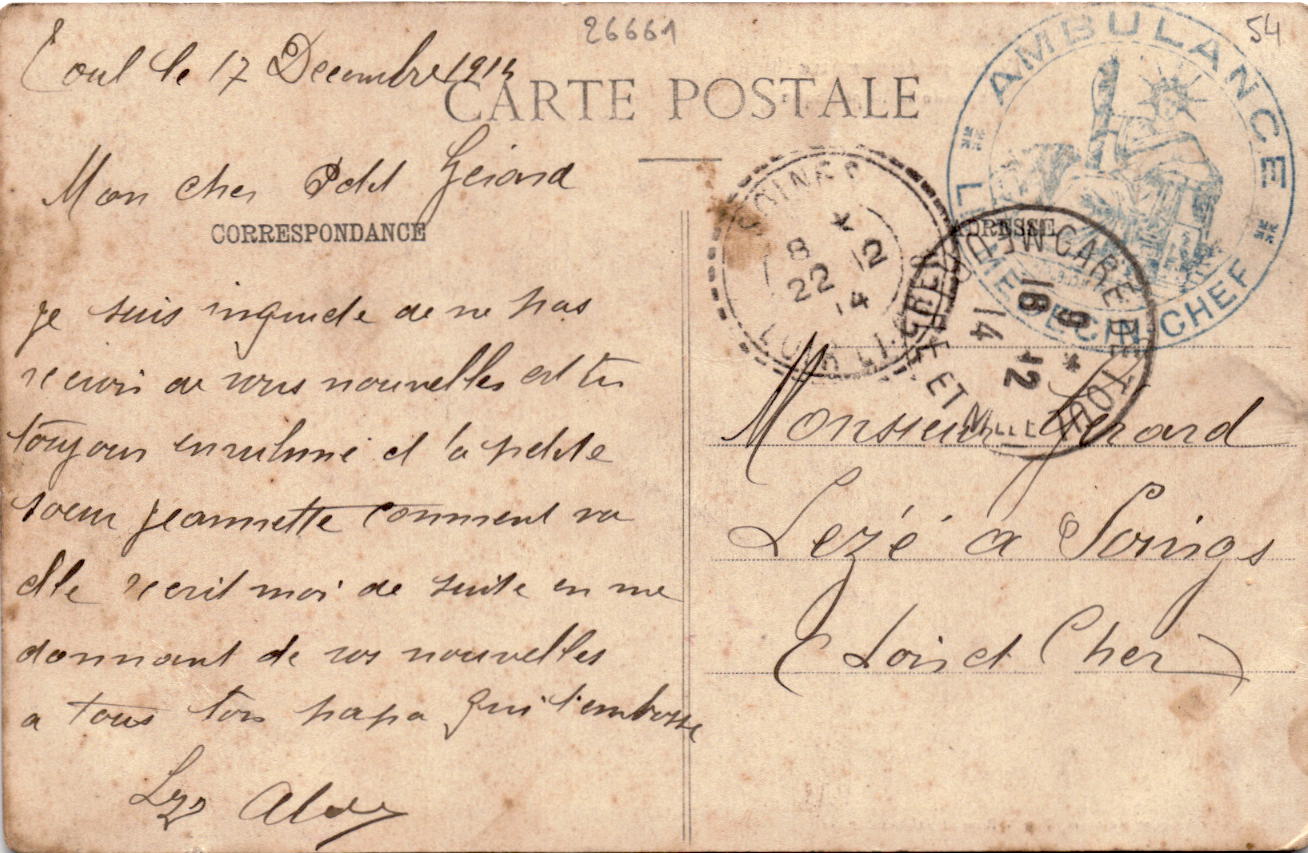 26661
54
Toul le 17 Decembre 1914
CARTE POSTALE
Mon cher Petit Gérard
CORRESPONDANCE
ADRESSE
je suis inquiete de ne pas
recevoir de vous nouvelles est tu
toujours enrulhmé et la petite
soeur jeannette comment va
elle recrit moi de suite en me
donnant de vos nouvelles
a tous ton papa qui t'embrasse
AMBULANCE
LE MEDECIN CHEF
SOINGS
8 *
22 12
14
LOIR ET CHER
GARE DE TOUL
MEURTHE ET MELLE
9 *
18 12
14
Monsieur Gérard
Lezé à Soings
(Loir et Cher)